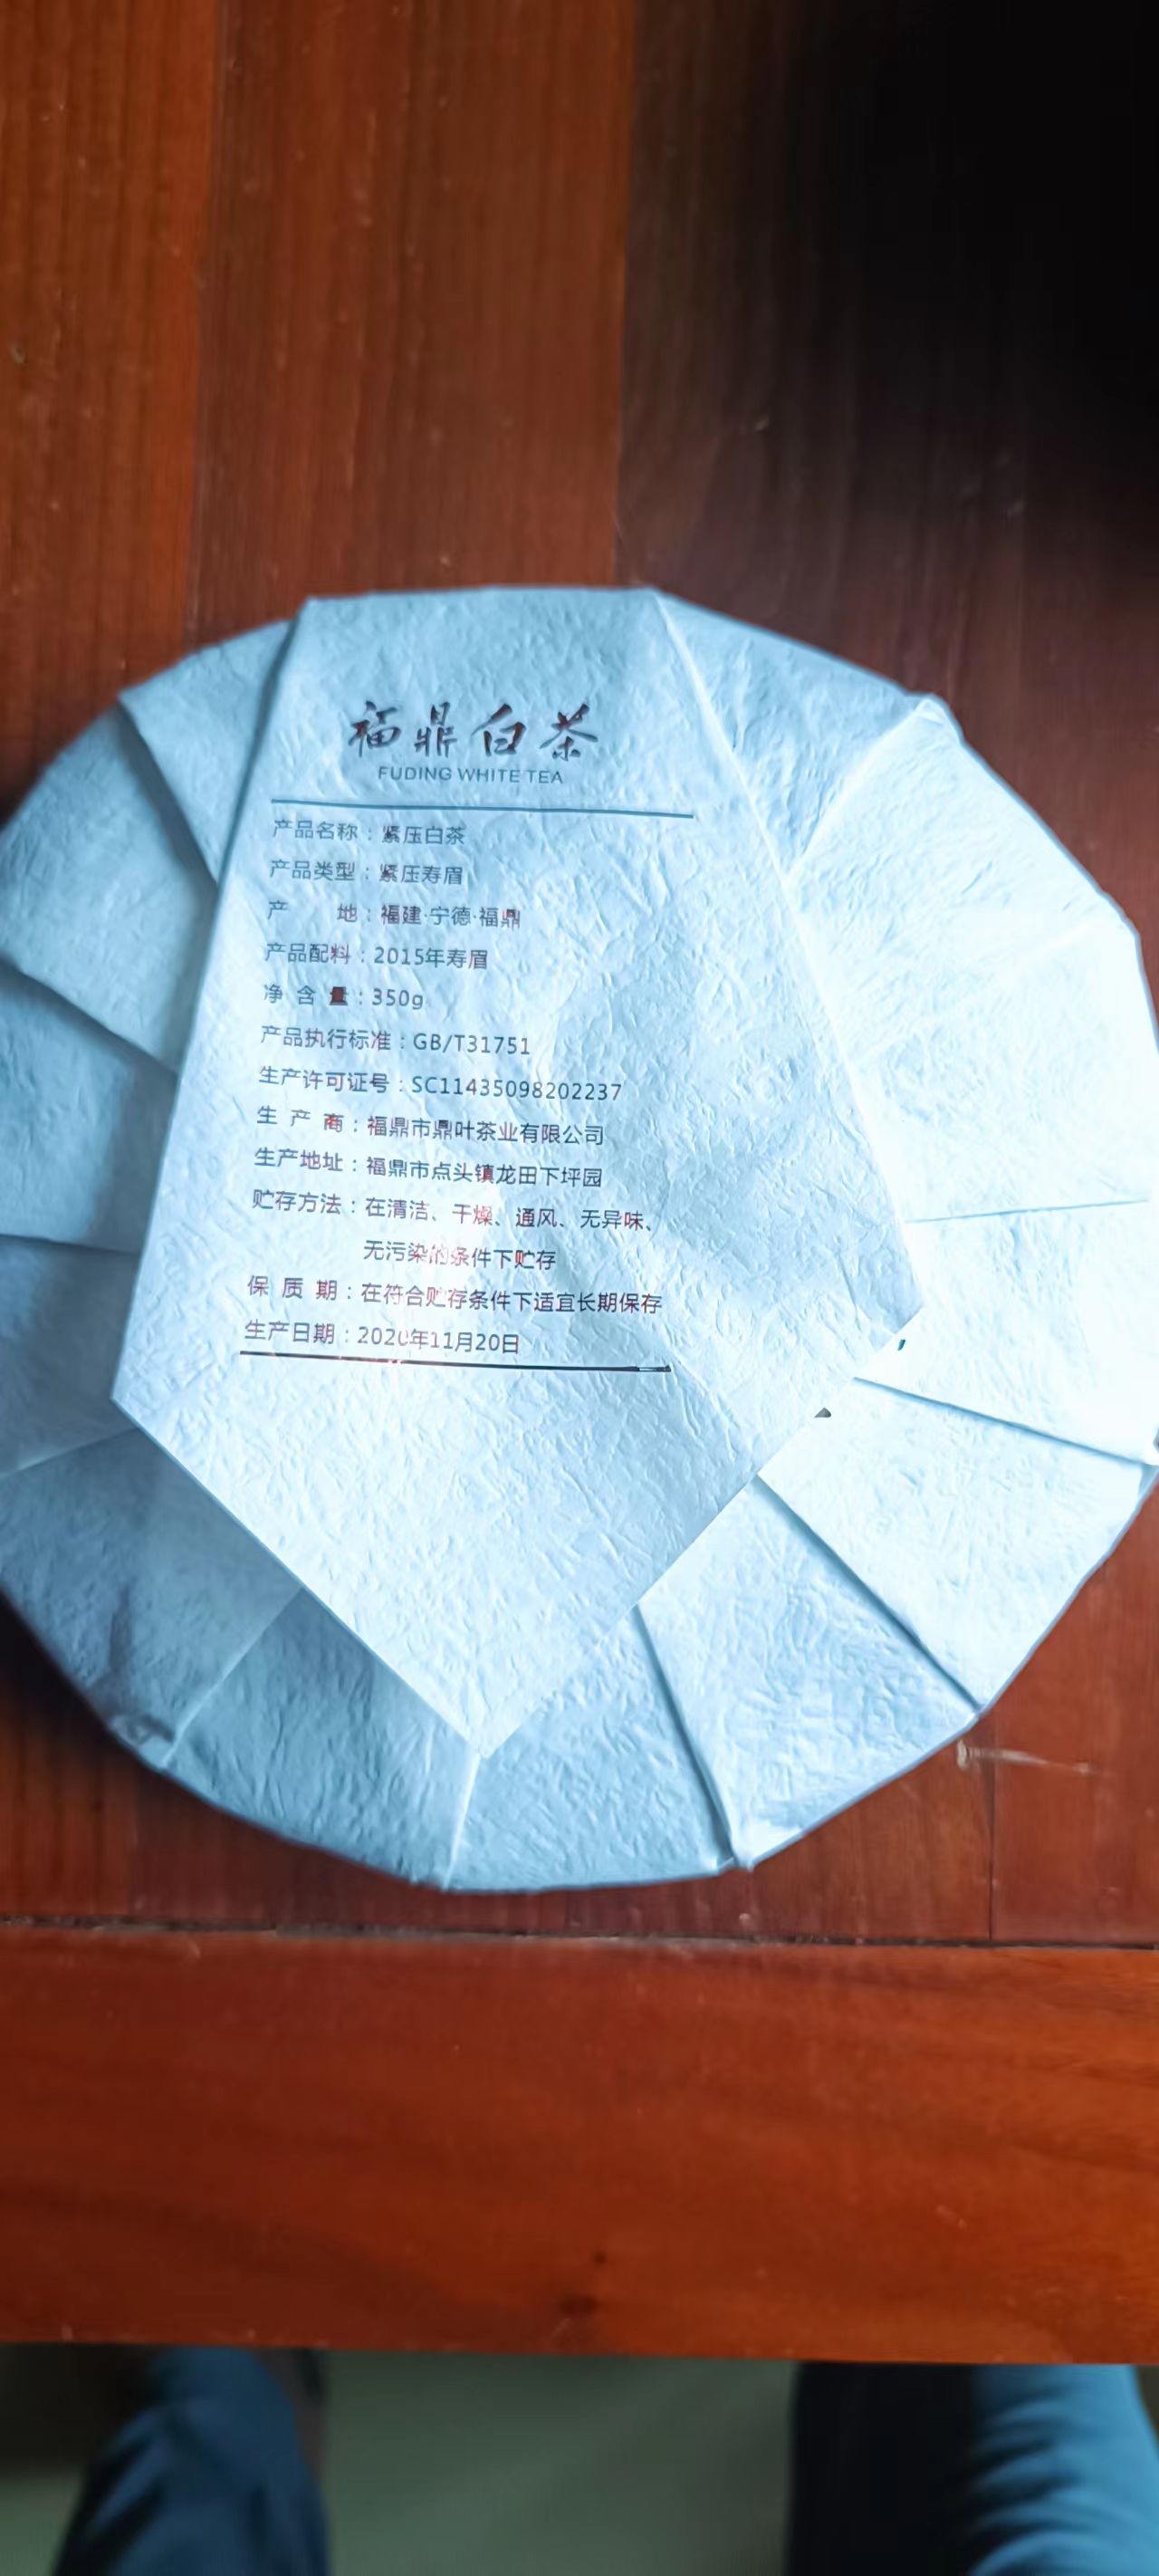 福鼎白茶
FUDING WHITE TEA
产品名称：紧压白茶
产品类型：紧压寿眉
产 地：福建·宁德·福鼎
产品配料：2015年寿眉
净 含 量：350g
产品执行标准：GB/T31751
生产许可证号：SC11435098202237
生 产 商：福鼎市鼎叶茶业有限公司
生产地址：福鼎市点头镇龙田下坪园
贮存方法：在清洁、干燥、通风、无异味、
无污染的条件下贮存
保 质 期：在符合贮存条件下适宜长期保存
生产日期：2020年11月20日